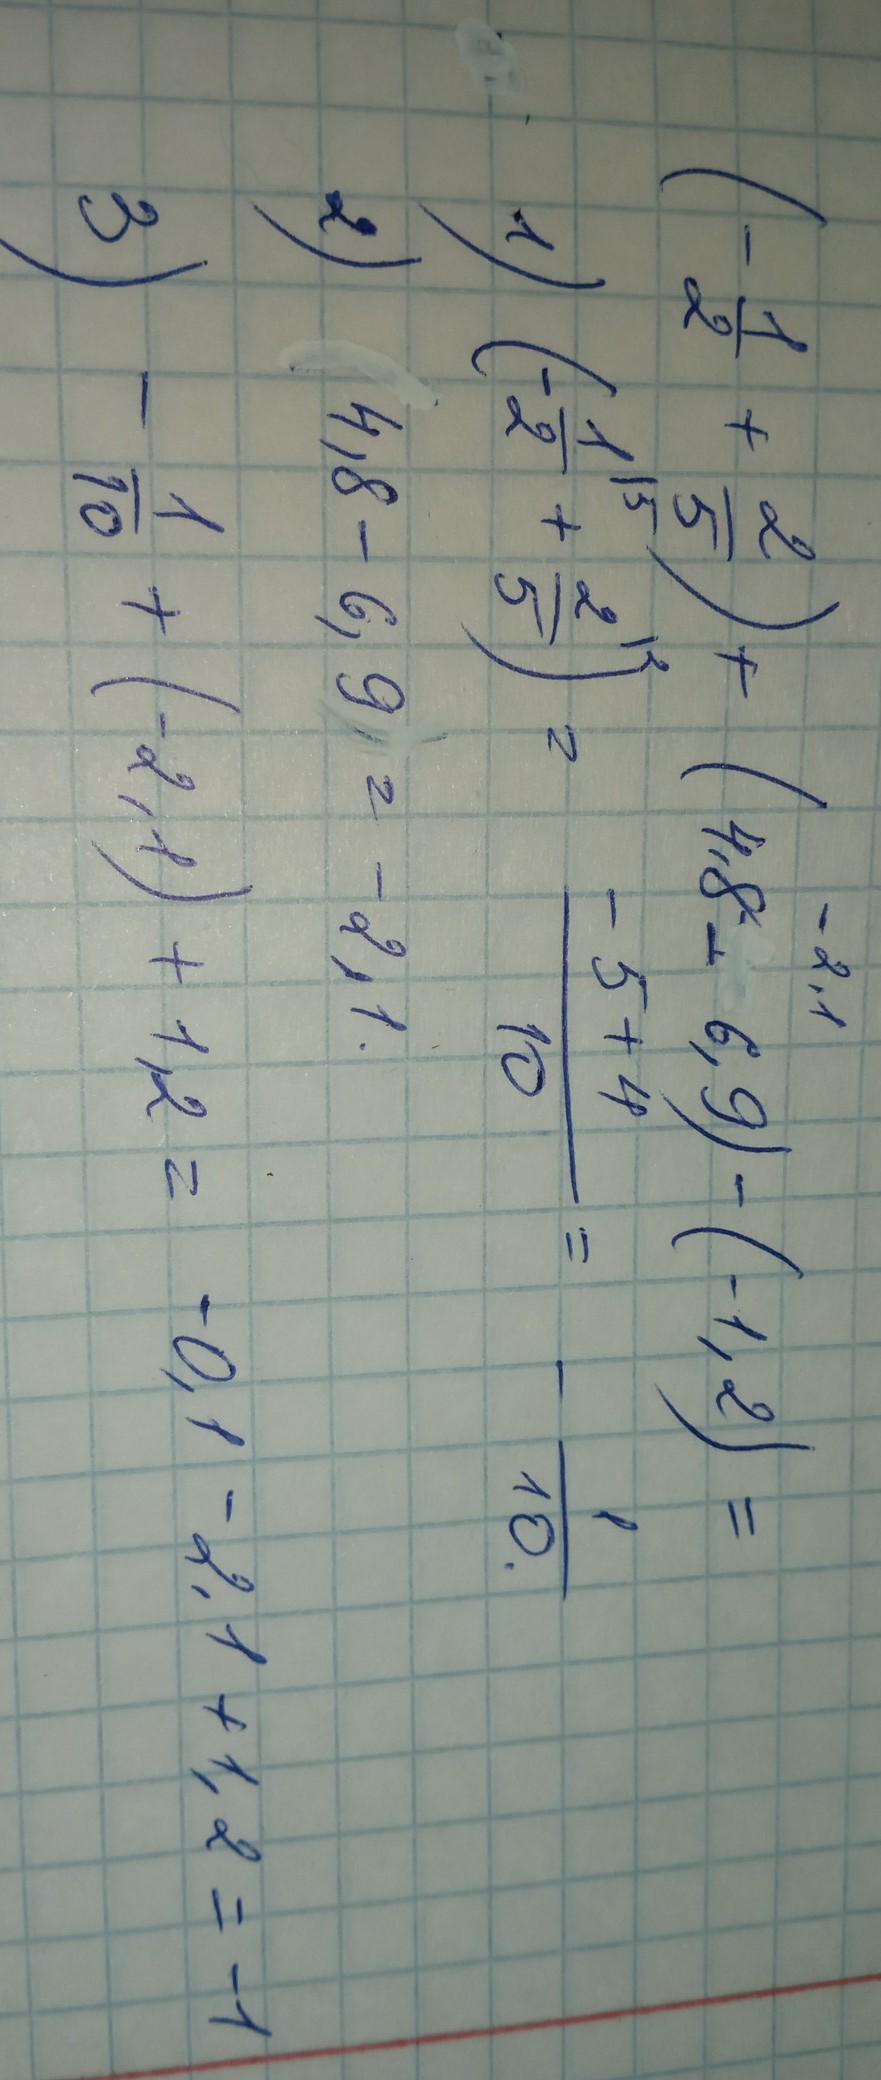 (-1/2 + 2/5) + (4,8 - 6,9) - (-1,2) =
-2,1
1) (-1/2 |5 + 2/5 |2) = (-5+4)/10 = - 1/10.
2) 4,8 - 6,9 = -2,1.
3) - 1/10 + (-2,1) + 1,2 = -0,1 - 2,1 + 1,2 = -1